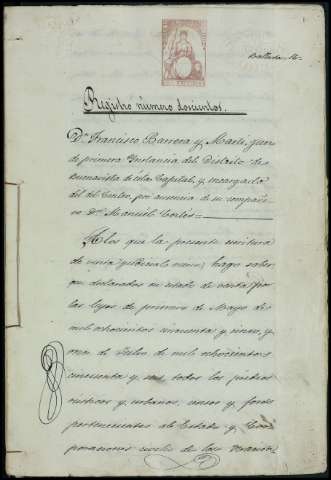 Registro número doscientos.
Dn. Francisco Barrera y Martí, Juez
de primera Instancia del Distrito de
Buenavista de esta Capital, y encargado
del del Centro, por ausencia de su compañe-
ro Dn. Manuel Cortés
A los que la presente escritura
de venta judicial vieren, hago saber
que declarados en estado de venta por
las leyes de primero de Mayo de
mil ochocientos cincuenta y cinco, y
once de Julio de mil ochocientos
cincuenta y seis todos los predios
rústicos y urbanos, censos y foros
pertenecientes al Estado y Cor-
poraciones civiles de la